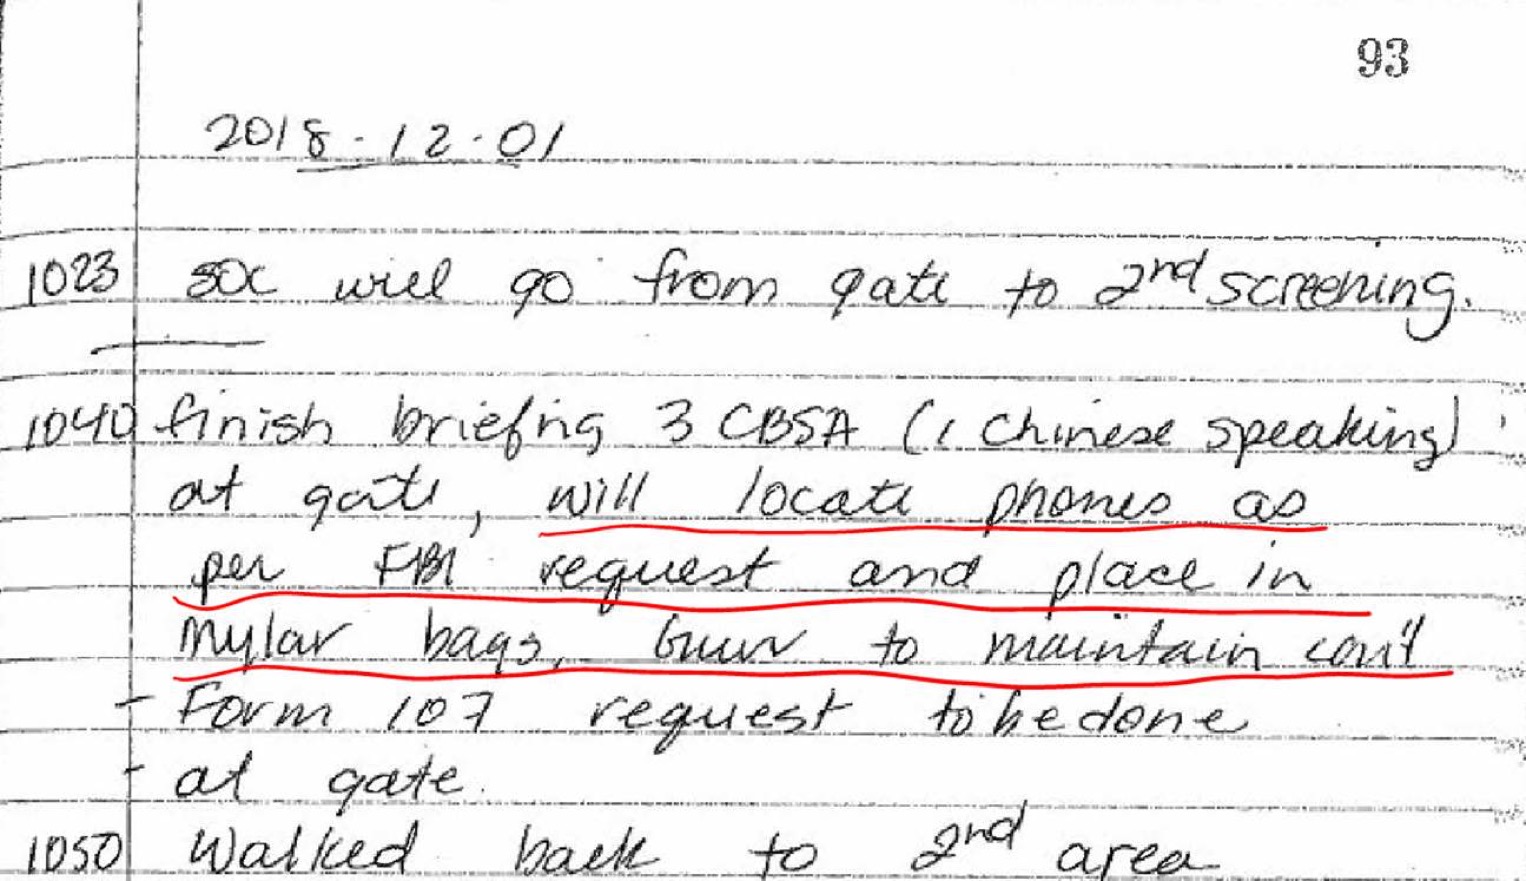 93
2018-12-01
1023 SOC will go from gate to 2nd screening.
1040 finish briefing 3 CBSA (1 Chinese speaking)
at gate, will locate phones as
per FBI request and place in
mylar bags, to maintain cont
- Form 107 request to be done
- at gate.
1050 Walked back to 2nd area